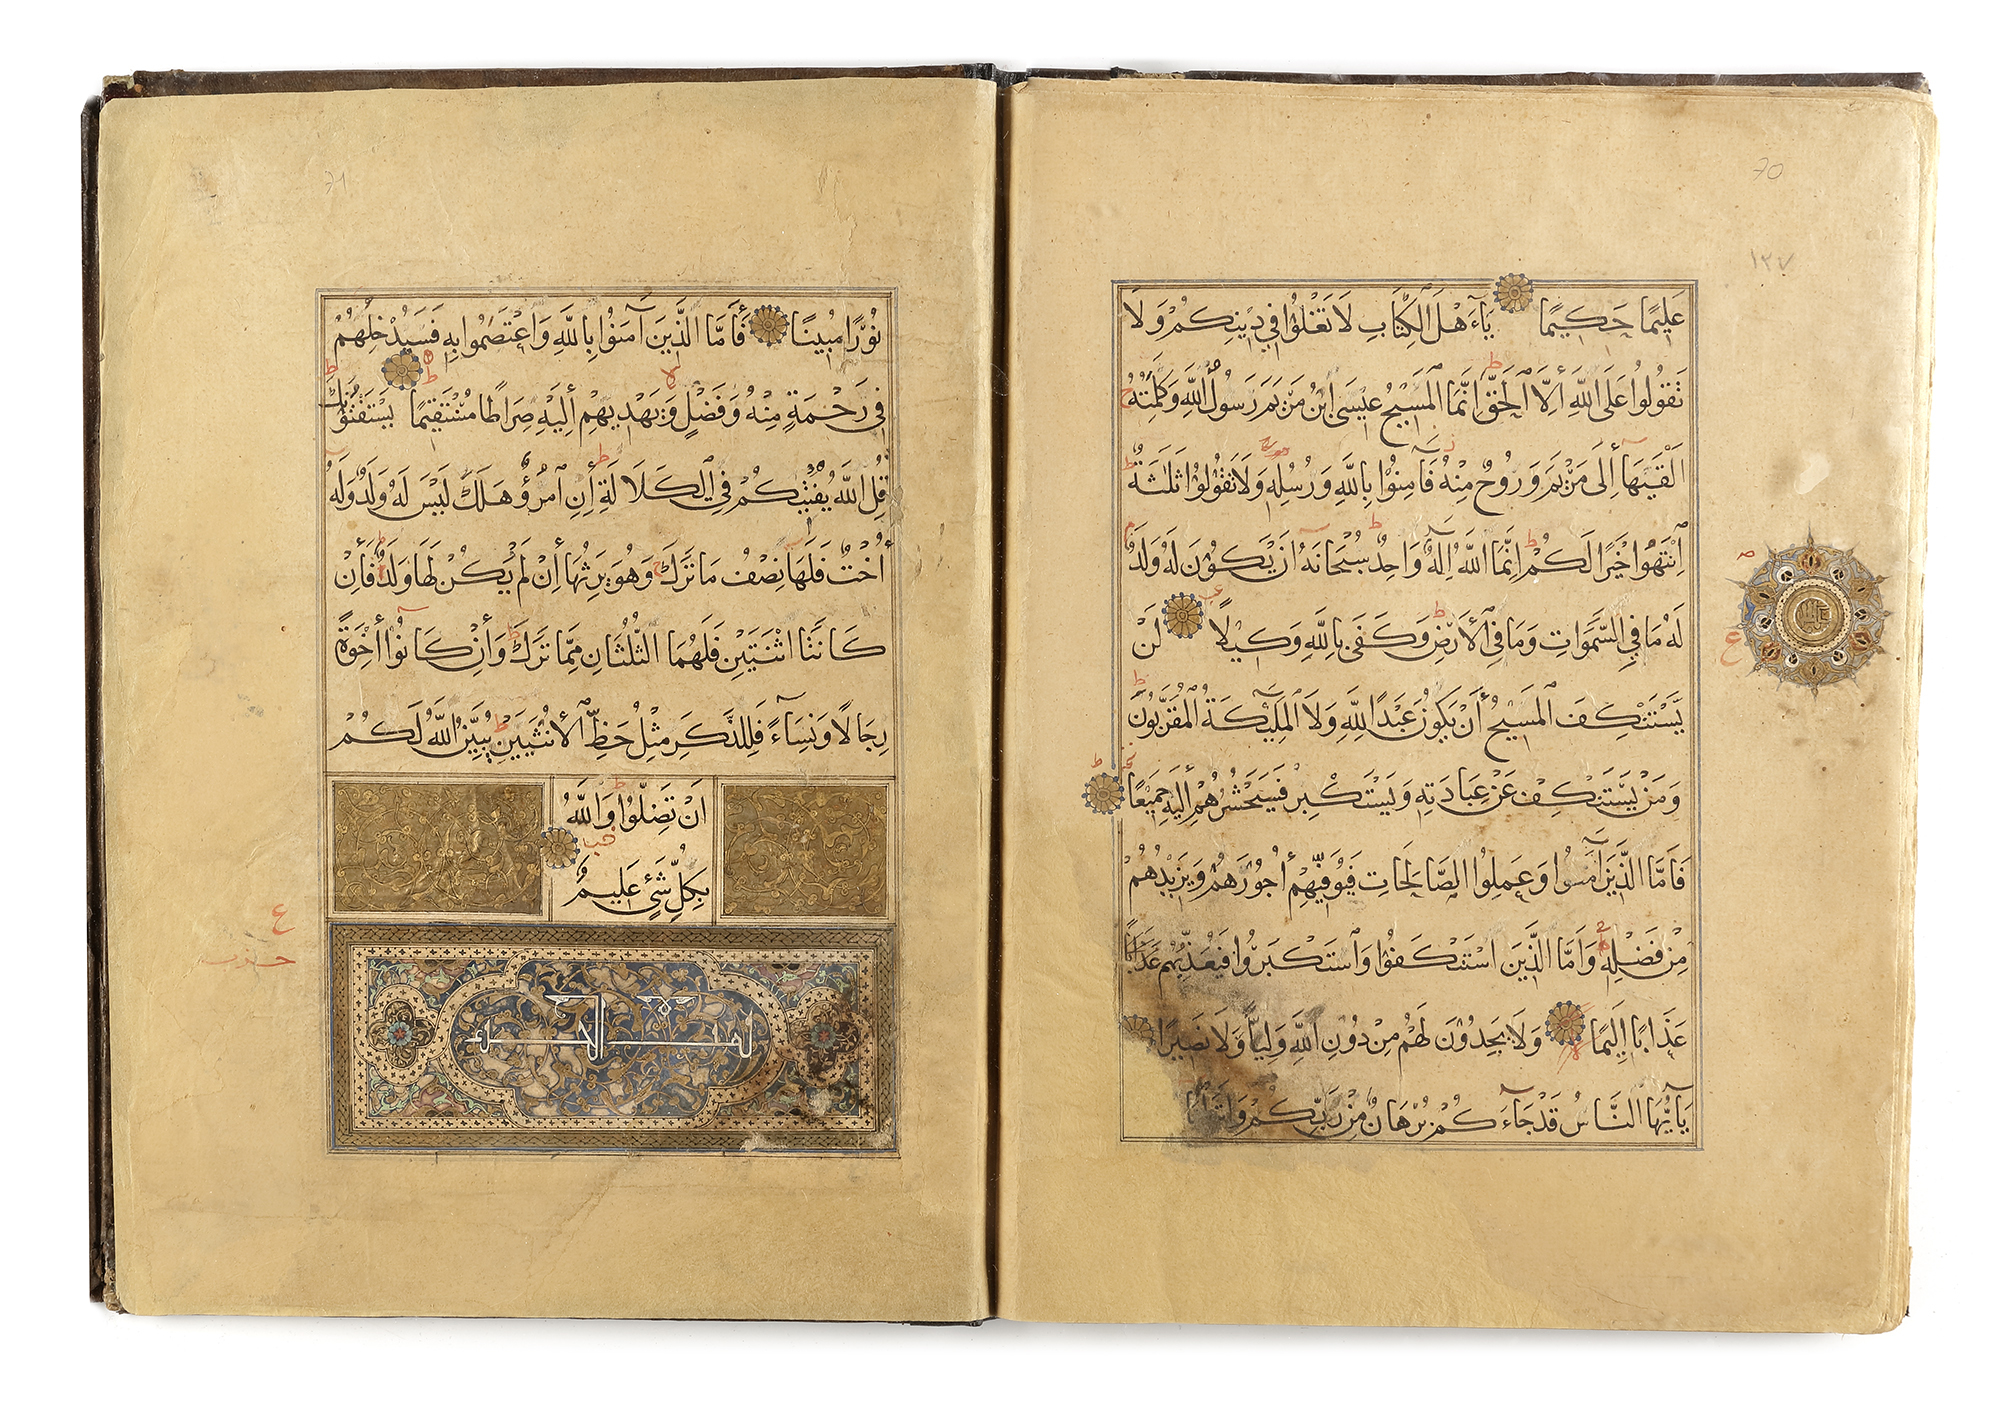 70
١٣٧
عَلِيمًا حَكِيمًا يَاءَهْلَ الْكِتَابِ لَا تَغْلُوا فِي دِينِكُمْ وَلَا
تَقُولُوا عَلَى اللَّهِ إِلَّا الْحَقَّ إِنَّمَا الْمَسِيحُ عِيسَى ابْنُ مَرْيَمَ رَسُولُ اللَّهِ وَكَلِمَتُهُ
أَلْقَيهَا إِلَى مَرْيَمَ وَرُوحٌ مِنْهُ فَآمِنُوا بِاللَّهِ وَرُسُلِهِ وَلَا تَقُولُوا ثَلَٰثَةٌ
انْتَهُوا خَيْرًا لَكُمْ إِنَّمَا اللَّهُ إِلَهٌ وَاحِدٌ سُبْحَانَهُ أَنْ يَكُونَ لَهُ وَلَدٌ
لَهُ مَا فِي السَّمَوَاتِ وَمَا فِي الْأَرْضِ وَكَفَى بِاللَّهِ وَكِيلًا لَنْ
يَسْتَنْكِفَ الْمَسِيحُ أَنْ يَكُونَ عَبْدًا لِلَّهِ وَلَا الْمَلَٰئِكَةُ الْمُقَرَّبُونَ
وَمَنْ يَسْتَنْكِفْ عَنْ عِبَادَتِهِ وَيَسْتَكْبِرْ فَسَيَحْشُرُهُمْ إِلَيْهِ جَمِيعًا
فَأَمَّا الَّذِينَ آمَنُوا وَعَمِلُوا الصَّالِحَاتِ فَيُوَفِّيهِمْ أُجُورَهُمْ وَيَزِيدُهُمْ
مِنْ فَضْلِهِ وَأَمَّا الَّذِينَ اسْتَنْكَفُوا وَاسْتَكْبَرُوا فَيُعَذِّبُهُمْ عَذَابًا
عَذَابًا أَلِيمًا وَلَا يَجِدُونَ لَهُمْ مِنْ دُونِ اللَّهِ وَلِيًّا وَلَا نَصِيرًا
يَا أَيُّهَا النَّاسُ قَدْ جَاءَكُمْ بُرْهَانٌ مِنْ رَبِّكُمْ وَأَنْزَلْنَا
ع
71
نُورًا مُبِينًا فَأَمَّا الَّذِينَ آمَنُوا بِاللَّهِ وَاعْتَصَمُوا بِهِ فَسَيُدْخِلُهُمْ
فِي رَحْمَةٍ مِنْهُ وَفَضْلٍ وَيَهْدِيهِمْ إِلَيْهِ صِرَاطًا مُسْتَقِيمًا يَسْتَفْتُونَكَ
قُلِ اللَّهُ يُفْتِيكُمْ فِي الْكَلَالَةِ إِنِ امْرُؤٌ هَلَكَ لَيْسَ لَهُ وَلَدٌ وَلَهُ
أُخْتٌ فَلَهَا نِصْفُ مَا تَرَكَ وَهُوَ يَرِثُهَا إِنْ لَمْ يَكُنْ لَهَا وَلَدٌ فَإِنْ
كَانَتَا اثْنَتَيْنِ فَلَهُمَا الثُّلُثَانِ مِمَّا تَرَكَ وَإِنْ كَانُوا إِخْوَةً
رِجَالًا وَنِسَاءً فَلِلذَّكَرِ مِثْلُ حَظِّ الْأُنْثَيَيْنِ يُبَيِّنُ اللَّهُ لَكُمْ
أَنْ تَضِلُّوا وَاللَّهُ
بِكُلِّ شَيْءٍ عَلِيمٌ
ع
حزب